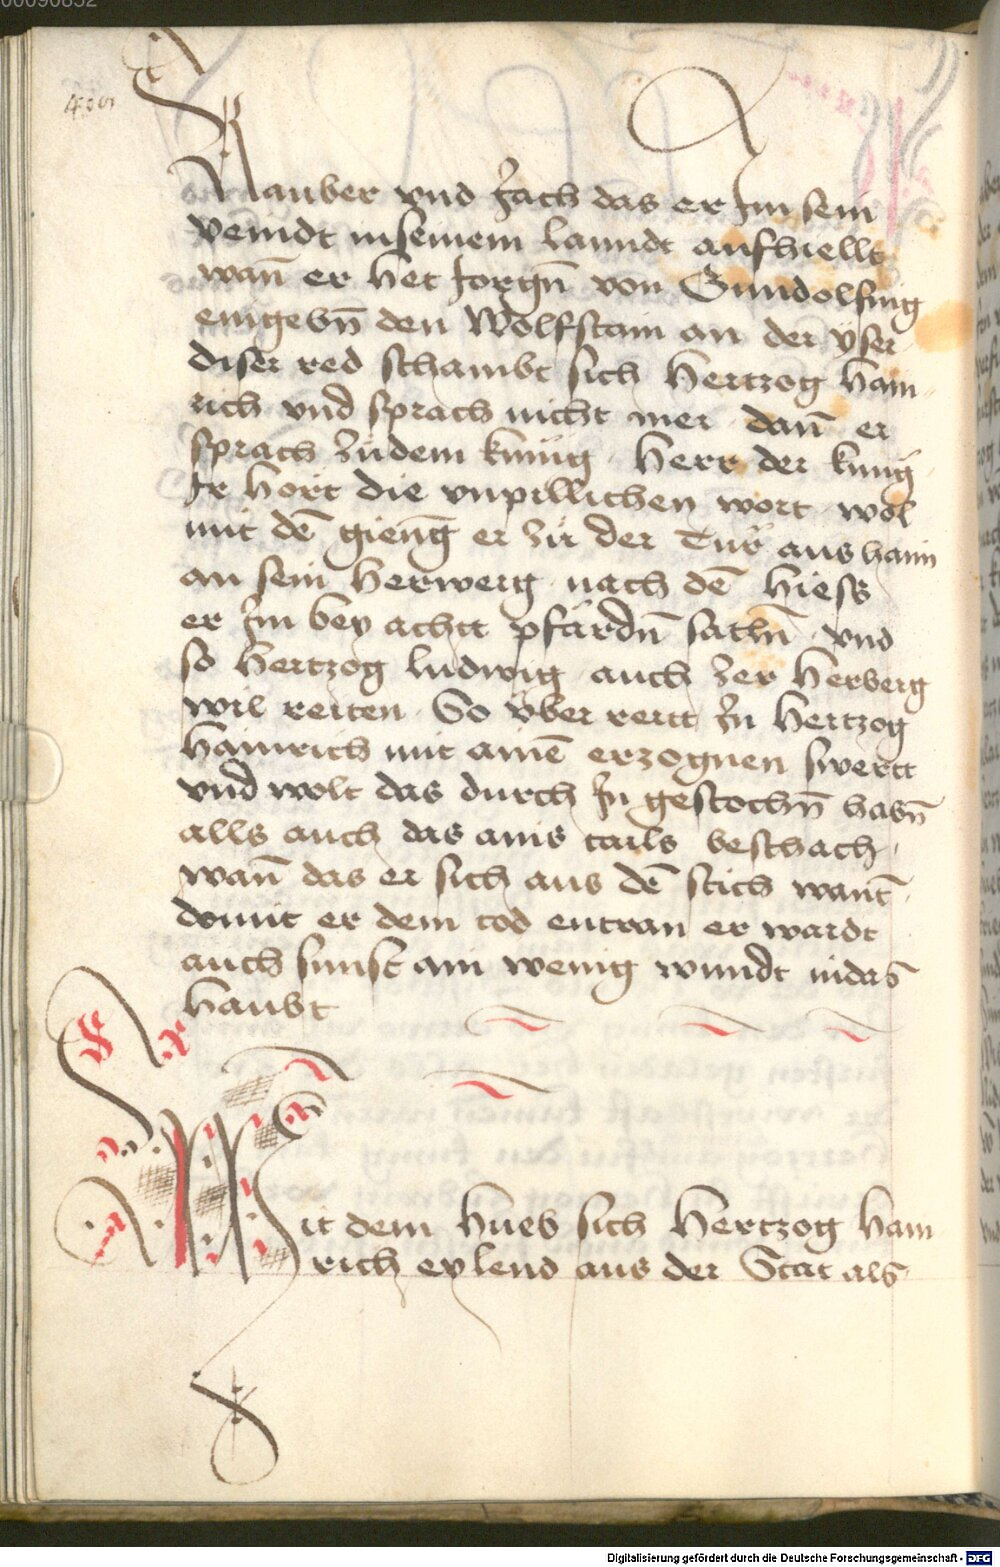 Rauber vnd Jach das er Im sein
veindt inseinem lanndt aufhiellt
wañ er het Jorgñ von Gundolfing
eingebñ den Wolfstain an der yser
diser red schambt sich Hertzog Hain
rich vnd sprach nicht mer dañ er
sprach zudem kunig Herr der kunig
Ir hort die vnpillichen wort wol
mit dē gieng er zu der Tur aus haim
an sein herwerg nach dē hiess
er Im bey achtt pfärdñ satlñ vnd
so Hertzog ludwig auch zer herberg
wil reiten So vber rertt In Hertzog
Hainrich mit ainē erzognen swertt
vnd wolt das durch In gestochñ habñ
alls auch das ains tails beschach
wañ das er sich aus dē stich want
domit er dem tod entran er wardt
auch sunst ain wenig wundt indas
haubt
Mit dem hueb sich Hertzog Hain
rich eylend aus der Stat als
Digitalisierung gefördert durch die Deutsche Forschungsgemeinschaft - DFG